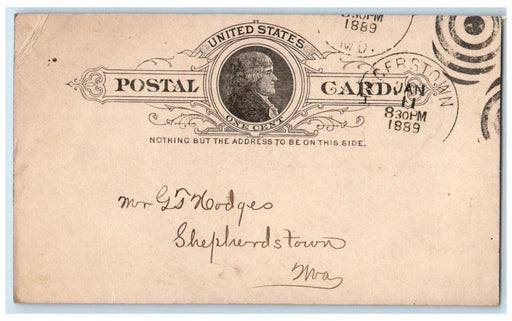 8 30PM
1889
MD.
UNITED STATES
POSTAL CARD.
ONE CENT
GERSTOWN
JAN
11
8 30PM
1889
NOTHING BUT THE ADDRESS TO BE ON THIS SIDE.
Mr G T Hodges
Shepherdstown
Wva